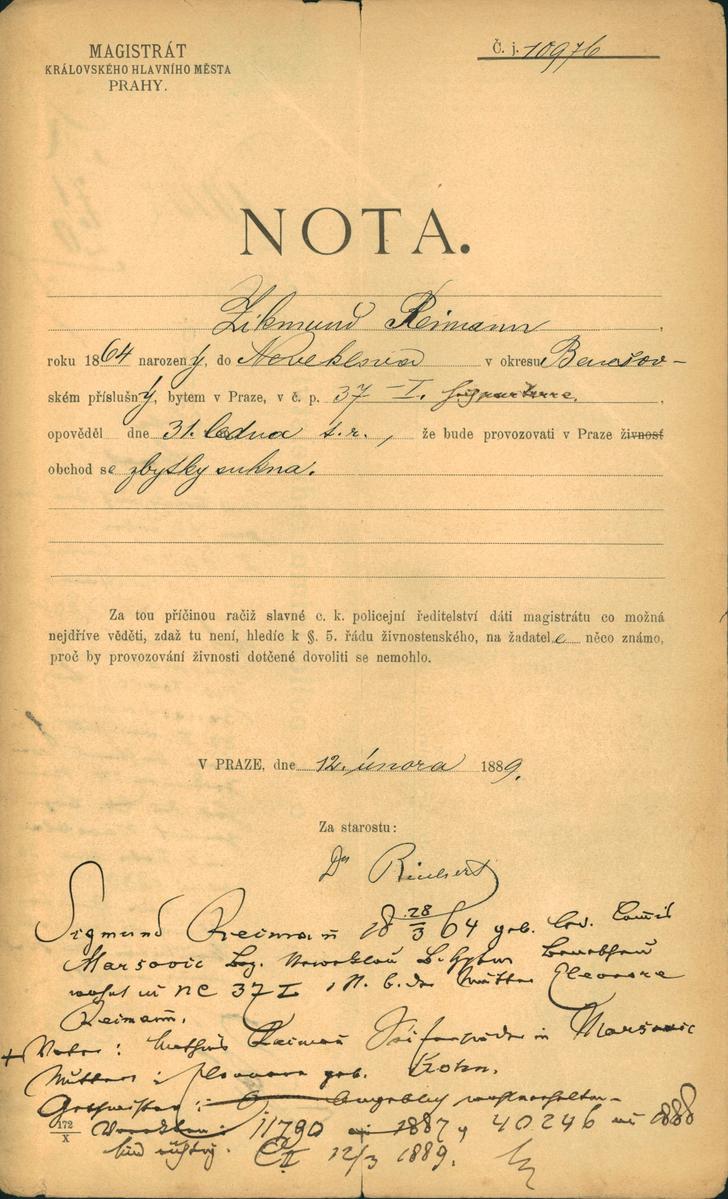 MAGISTRÁT
KRÁLOVSKÉHO HLAVNÍHO MĚSTA
PRAHY.
Č. j. 10976
NOTA.
Zikmund Reimann,
roku 1864 narozený, do Neveklova v okresu Benešov-
ském příslušný, bytem v Praze, v č. p. 37-I.
opověděl dne 31. ledna t. r., že bude provozovati v Praze živnost
obchod se zbytky sukna.
Za tou příčinou račiž slavné c. k. policejní ředitelství dáti magistrátu co možná
nejdříve věděti, zdaž tu není, hledíc k §. 5. řádu živnostenského, na žadatele něco známo,
proč by provozování živnosti dotčené dovoliti se nemohlo.
V PRAZE, dne 12. února 1889.
Za starostu:
Dr
Sigmund Reimann 18 28/3 64 geb. led.
Marsovic Bez.
NC 37 I Mutter Eleonore
Reimann.
+ Vater: Reimann in Marsovic
Mutter: Eleonora geb. Kohn.
Geschwister:
172/X 11790 1887, 40246 1888
12/3 1889.